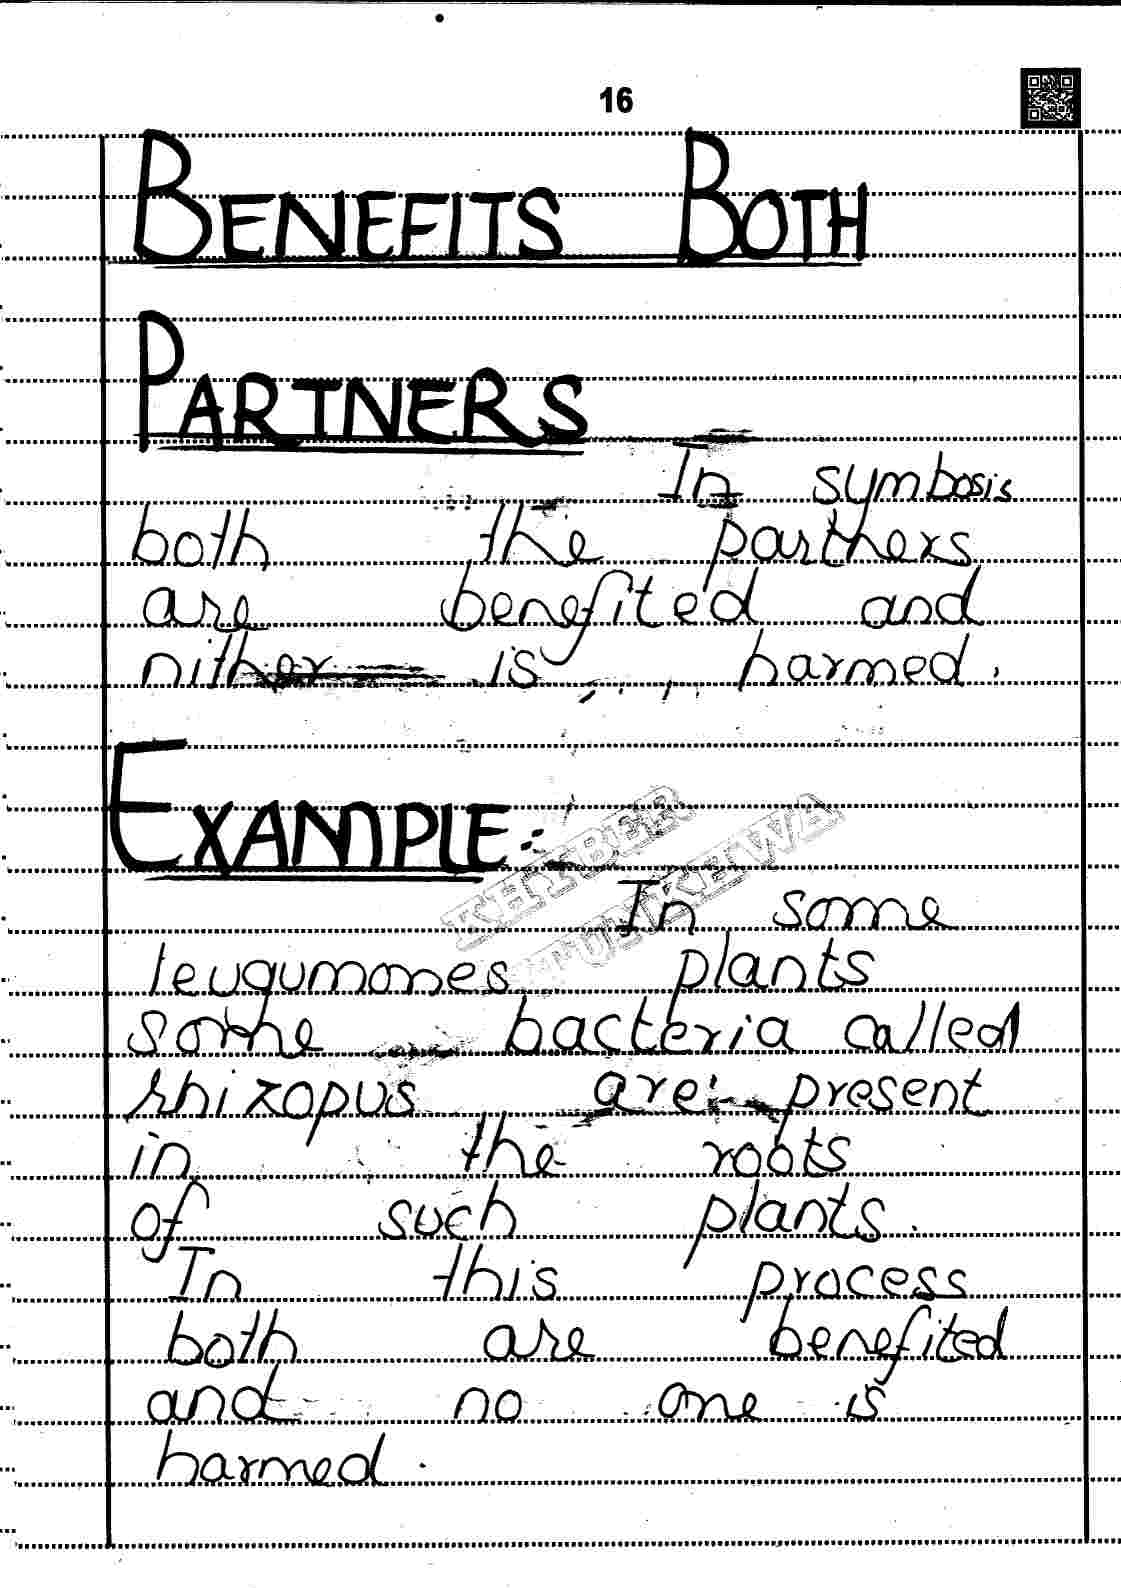 16
BENEFITS BOTH
PARTNERS
In symbosis
both the partners
are benefited and
nither is harmed.
EXAMPLE:-
KHYBER
In some
leugumones plants
some bacteria called
rhizopus are present
in the roots
of such plants.
In this process
both are benefited
and no one is
harmed.